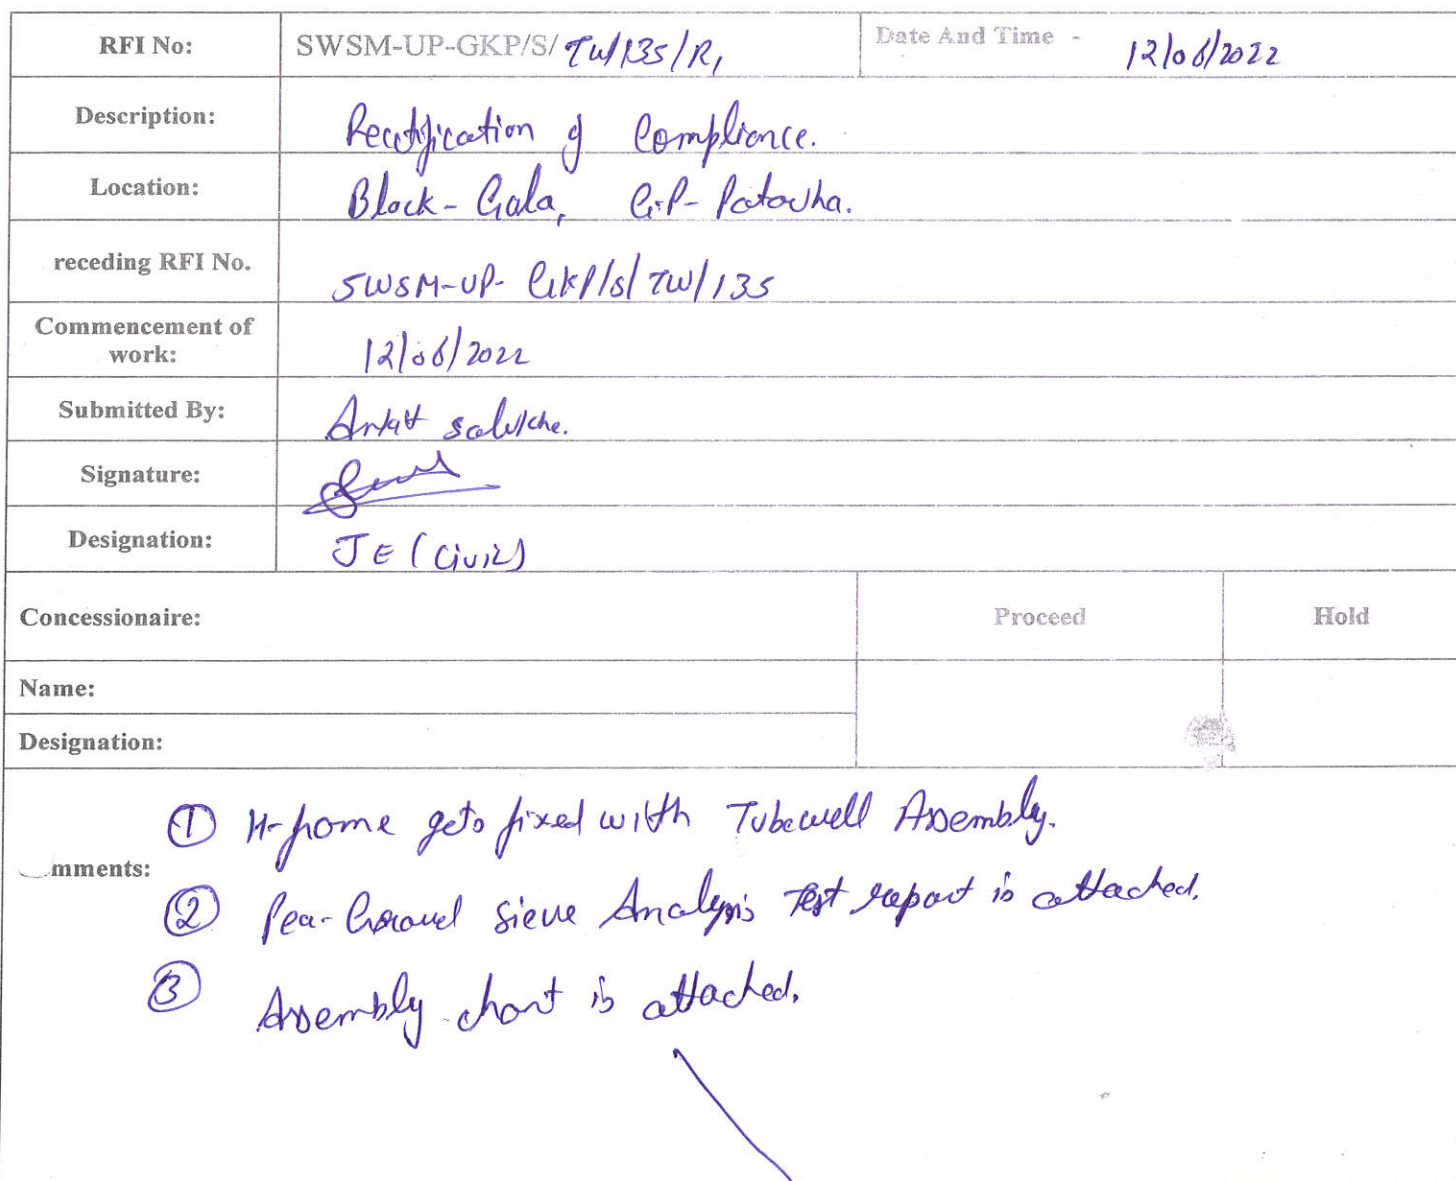 RFI No: SWSM-UP-GKP/S/ TW/135/R1 Date And Time - 12/06/2022
Description: Rectification of Compliance.
Location: Block- Gola, G.P- Patauha.
receding RFI No. SWSM-UP- GKP/S/TW/135
Commencement of
work: 12/06/2022
Submitted By: Ankit
Signature:
Designation: JE (Civil)
Concessionaire: Proceed Hold
Name:
Designation:
① H-frame gets fixed with Tubewell Assembly.
mments:
② Pea-Gravel sieve Analysis Test report is attached.
③ Assembly chart is attached.